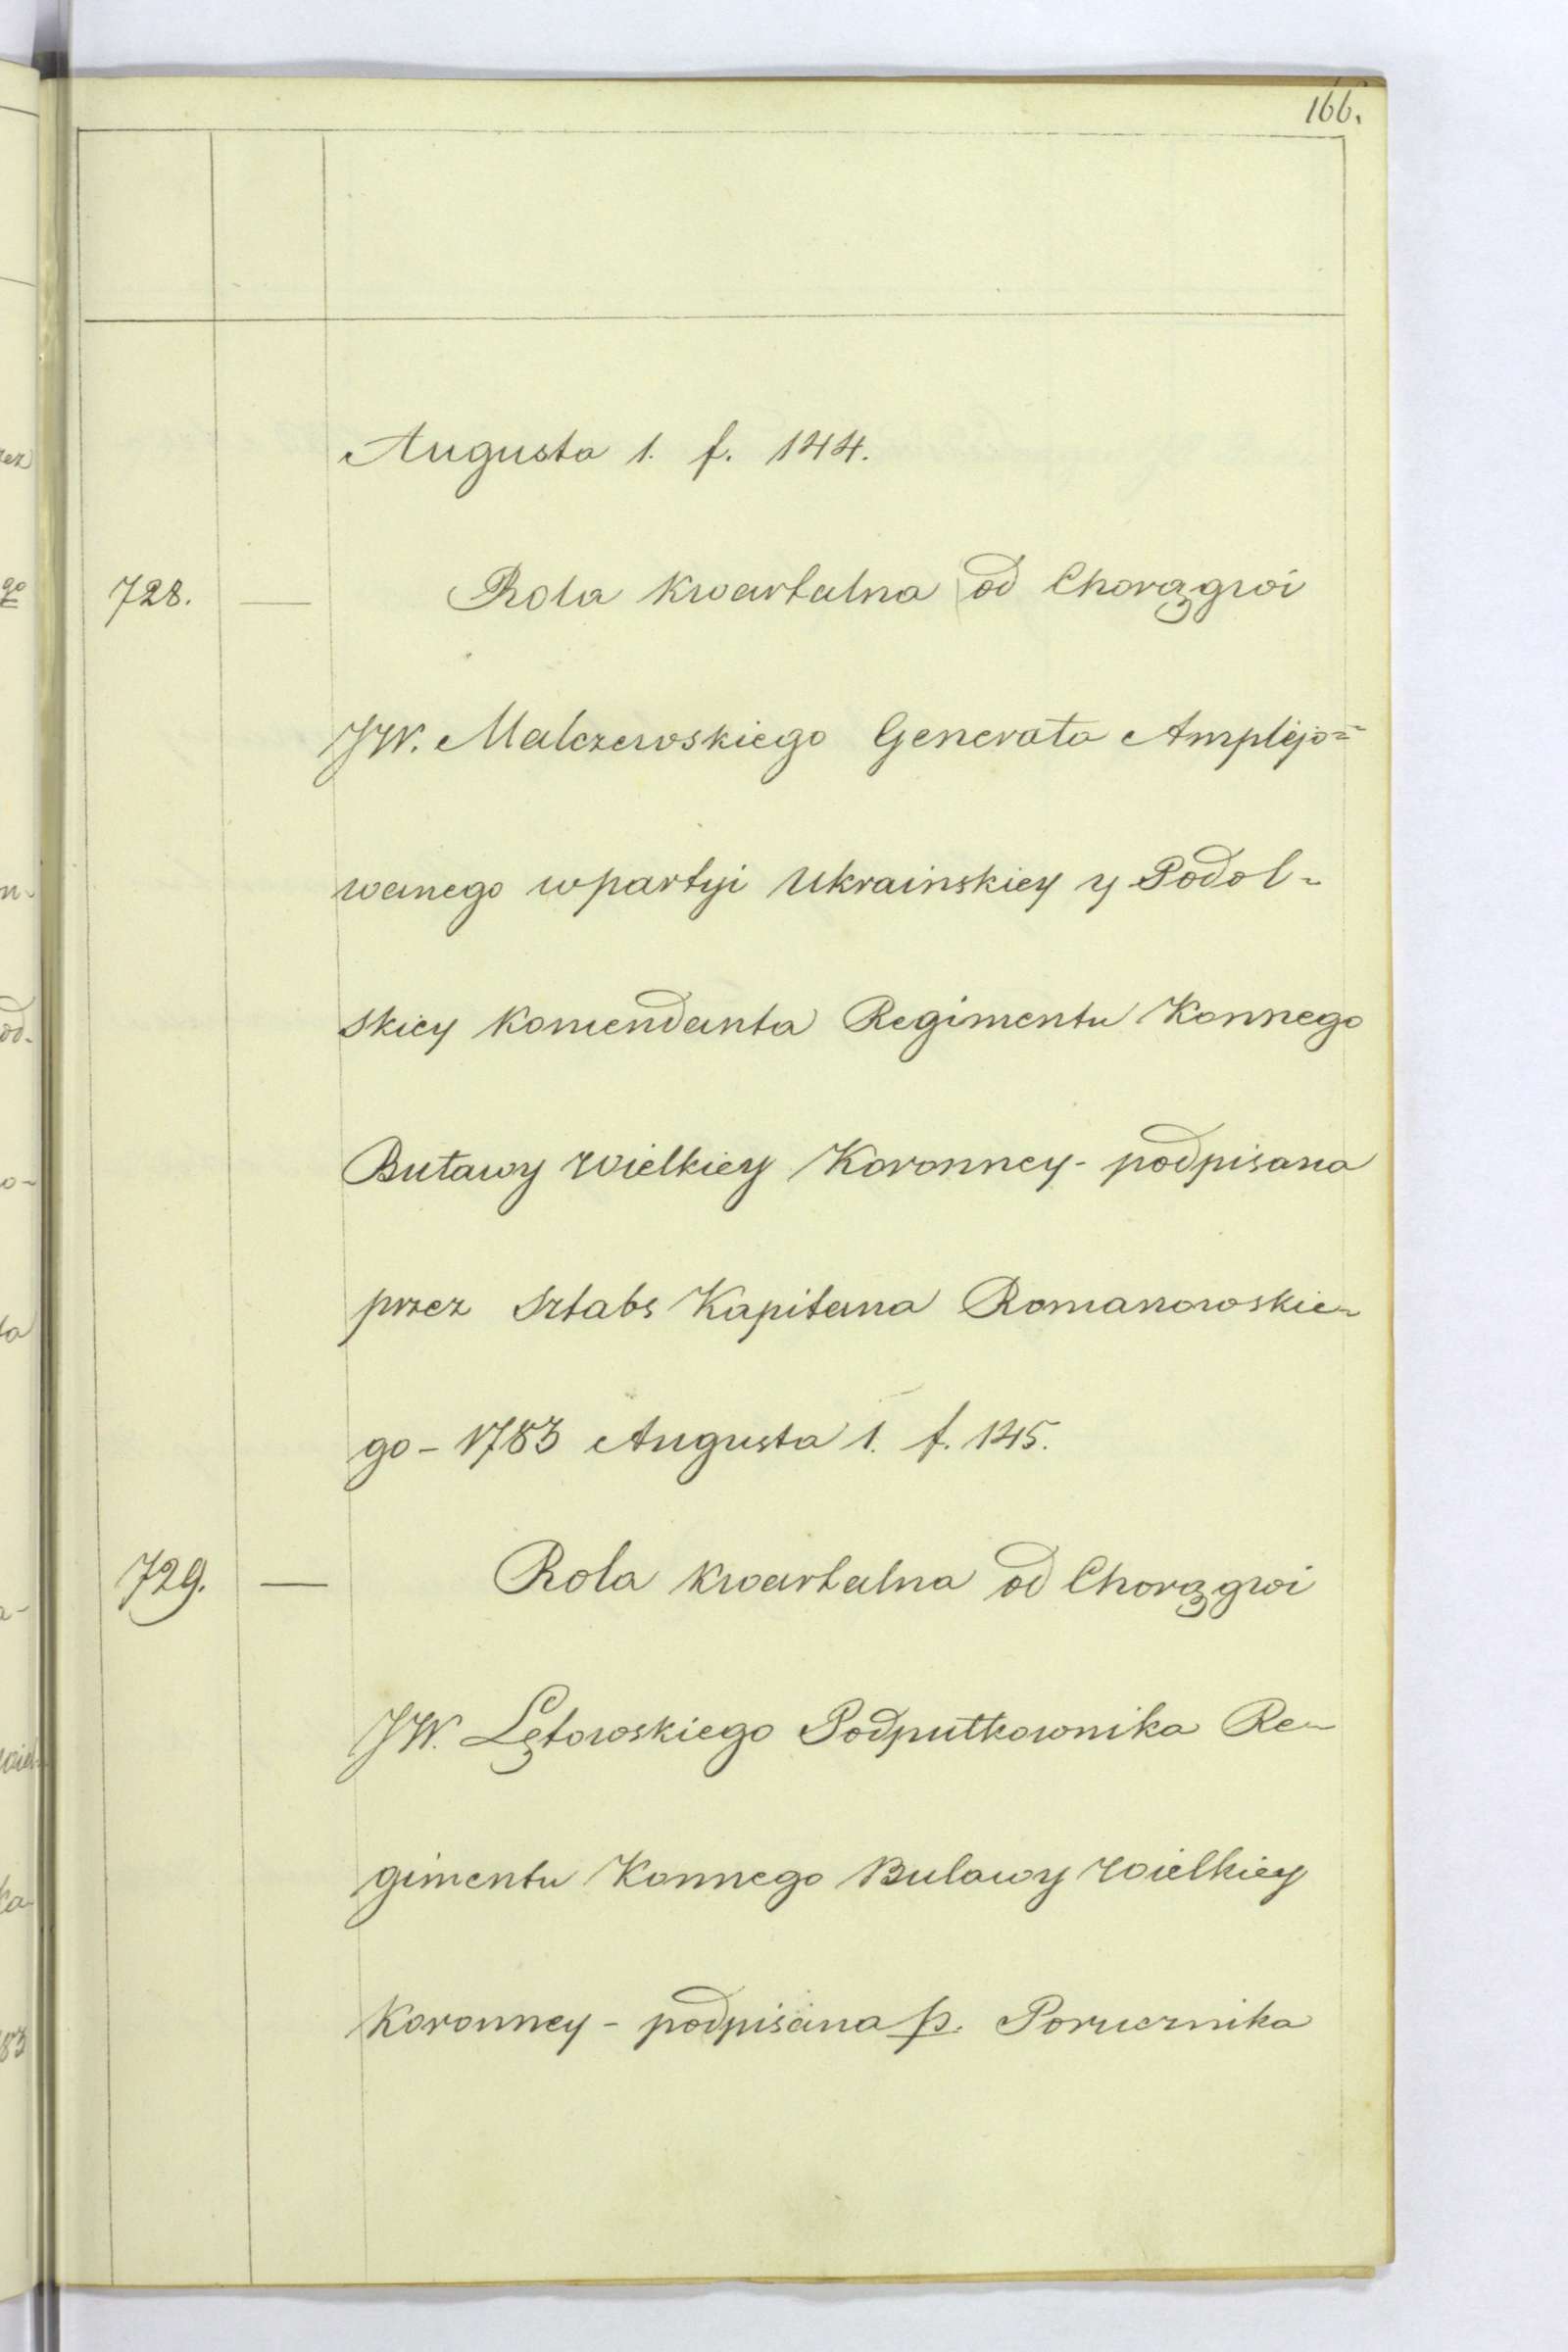 166.
Augusta 1. f. 144.
728. — Rola kwartalna od Chorągwi
JW. Malczewskiego Generała Amplijo=
wanego wpartyi Ukrainskiey y Podol-
skiey Komendanta Regimentu Konnego
Buławy Wielkiey Koronney - podpisana
przez Sztabs Kapitana Romanowskie-
go - 1783 Augusta 1. f. 145.
729. — Rola kwartalna od Chorągwi
JW. Lętowskiego Podpułkownika Re-
gimentu Konnego Bulawy Wielkiey
Koronney - podpisana p. Porucznika